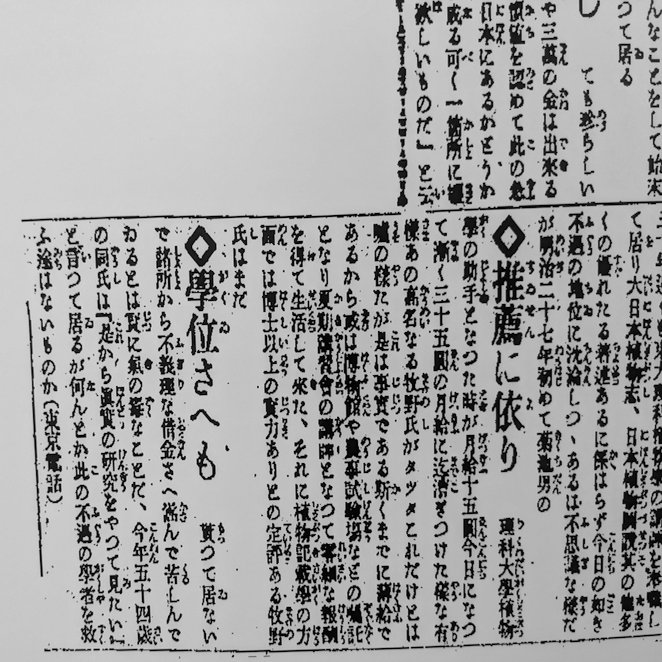 んなことをして始末
つて居る
ても珍らしい
や三萬の金は出來る
價値を認めて此の急
日本にあるかどうか
成る可く一箇所に纏
欲しいものだ』と云
理科植物學の講師を奉職し
て居り大日本植物志、日本植物圖說其の他多
くの優れたる著述あるに係はらず今日の如き
不遇の地位に沈淪しつゝあるは不思議な樣だ
が明治二十七年初めて菊池男の
◇推薦に依り 理科大學植物
學の助手となつた時が月給十五圓今日になつ
て漸く三十五圓の月給に迄漕ぎつけた樣な有
樣あの高名なる牧野氏がタツタこれだけとは
嘘の樣だが是は事實である斯くまでに薄給で
あるから或は博物館や農事試驗場などの囑託
となり夏期講習會の講師となつて零細な報酬
を得て生活して來た、それに植物記載學の方
面では博士以上の實力ありとの定評ある牧野
氏はまだ
◇學位さへも 貰つて居ない
で諸所から不義理な借金さへ嵩んで苦しんで
ゐるとは實に氣の毒なことだ、今年五十四歲
の同氏は『是から眞實の研究をやつて見たい』
と言つて居るが何んとか此の不遇の學者を救
ふ途はないものか(東京電話)